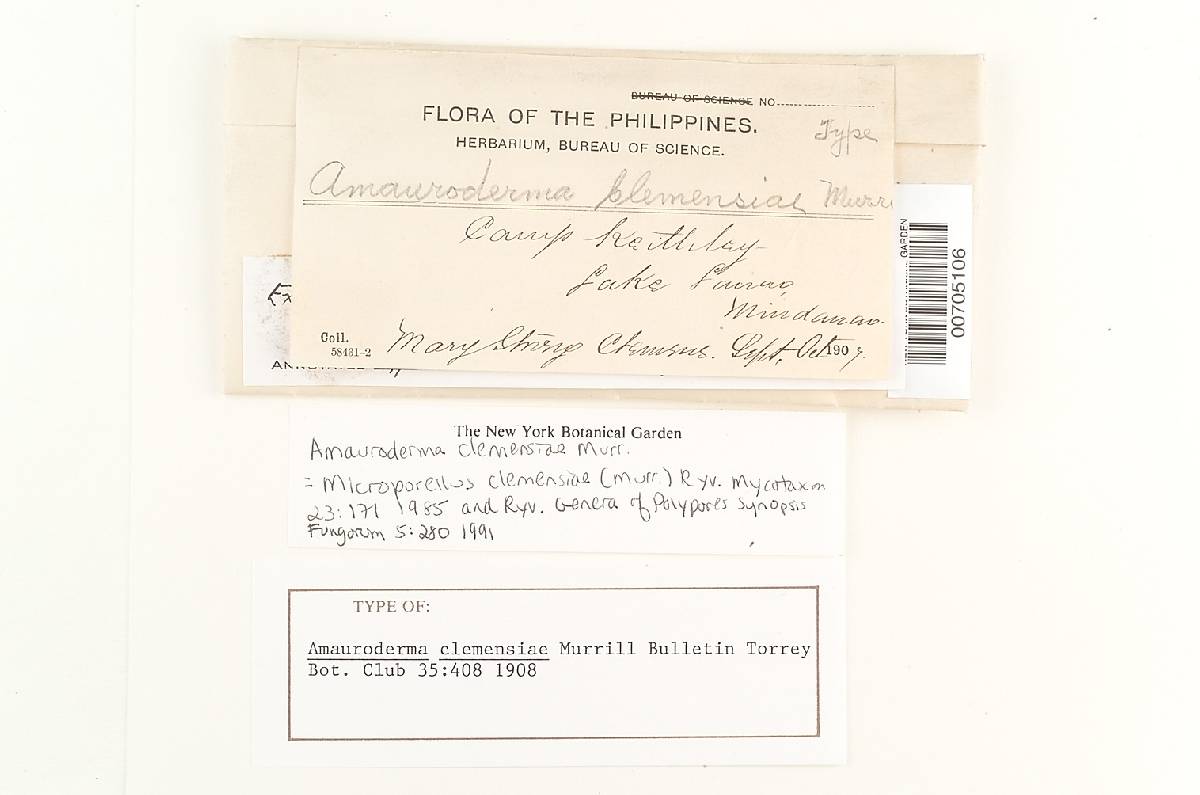 BUREAU OF SCIENCE NO
FLORA OF THE PHILIPPINES.
Type
HERBARIUM, BUREAU OF SCIENCE.
Amauroderma clemensiae Murr
Camp Keithley
Lake Lanao,
Mindanao.
Coll.
58431-2
Mary Strong Clemens. Sept, Oct 1907.
Ex
GARDEN
00705106
The New York Botanical Garden
Amauroderma clemensiae Murr.
= Microporellus clemensiae (Murr.) Ryv. Mycotaxon
23:171 1985 and Ryv. Genera of Polypores Synopsis
Fungorum 5:280 1991
TYPE OF:
Amauroderma clemensiae Murrill Bulletin Torrey
Bot. Club 35:408 1908